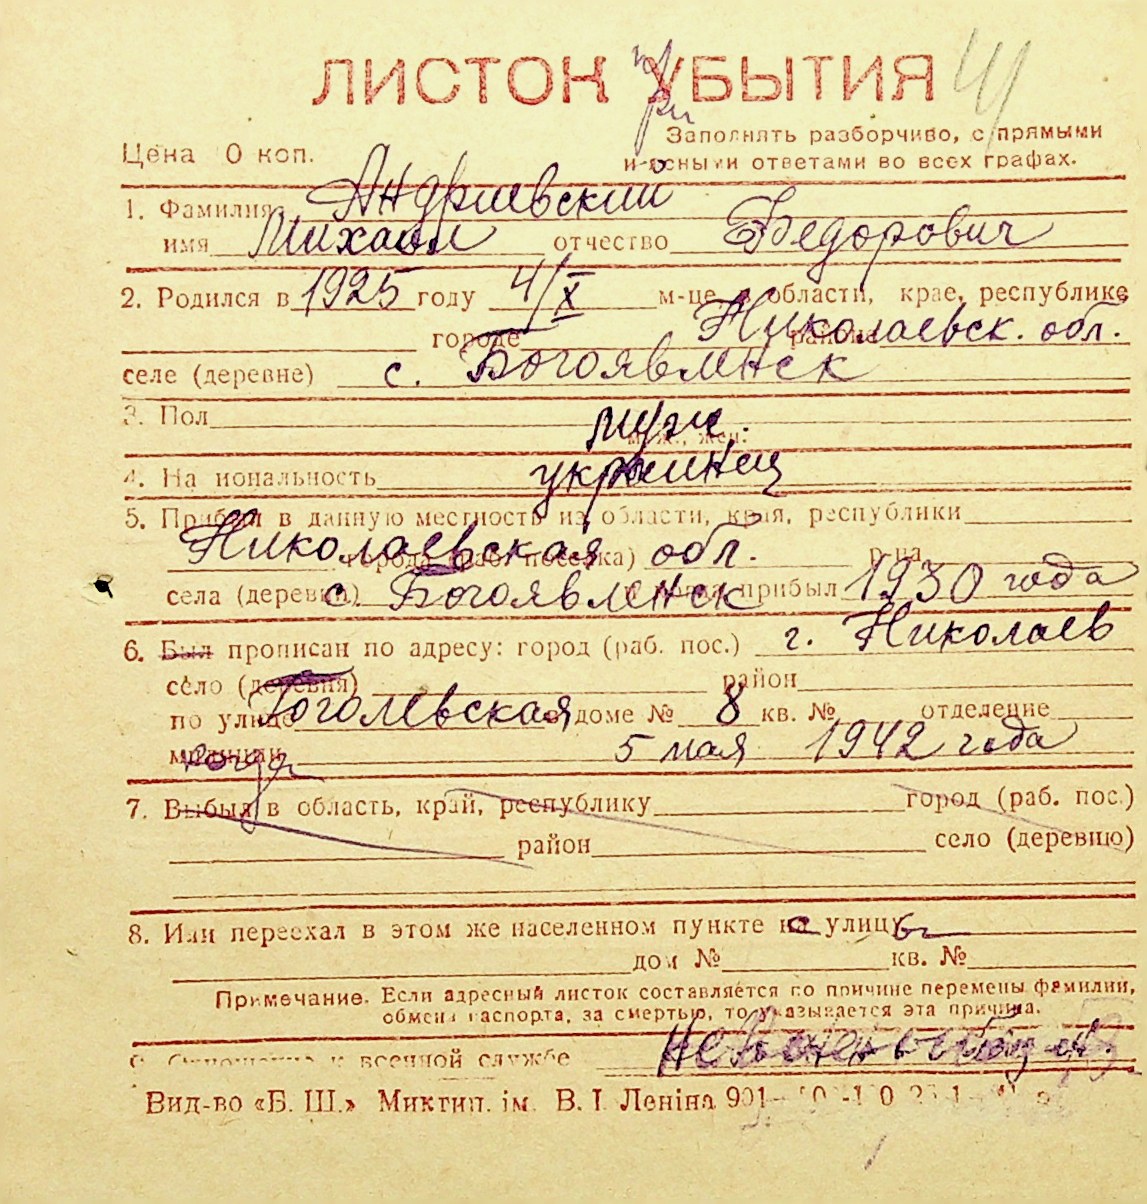 ЛИСТОК УБЫТИЯ
при
Заполнять разборчиво, с прямыми
и ясными ответами во всех графах.
Цена 0 коп.
1. Фамилия Андриевский
имя Михаил отчество Федорович
2. Родился в 1925 году 4/X м-це, в области, крае, республике
Николаевск. обл.
городе районе
селе (деревне) с. Богоявленск
3. Пол муж.
муж., жен.
4. Национальность украинец
5. Прибыл в данную местность из области, края, республики
Николаевская обл.
города (раб. поселка) р-на
села (деревни) с. Богоявленск прибыл 1930 года
6. Был прописан по адресу: город (раб. пос.) г. Николаев
село (деревня) район
по улице Гоголевская в доме № 8 кв. № отделение
милиции когда 5 мая 1942 года
7. Выбыл в область, край, республику город (раб. пос.)
район село (деревню)
8. Или переехал в этом же населенном пункте на улицу
дом № кв. №
Примечание. Если адресный листок составляется по причине перемены фамилии,
обмена паспорта, за смертью, то указывается эта причина.
9. Отношение к военной службе
Вид-во «Б. Ш.» Миктип. ім. В. І. Леніна